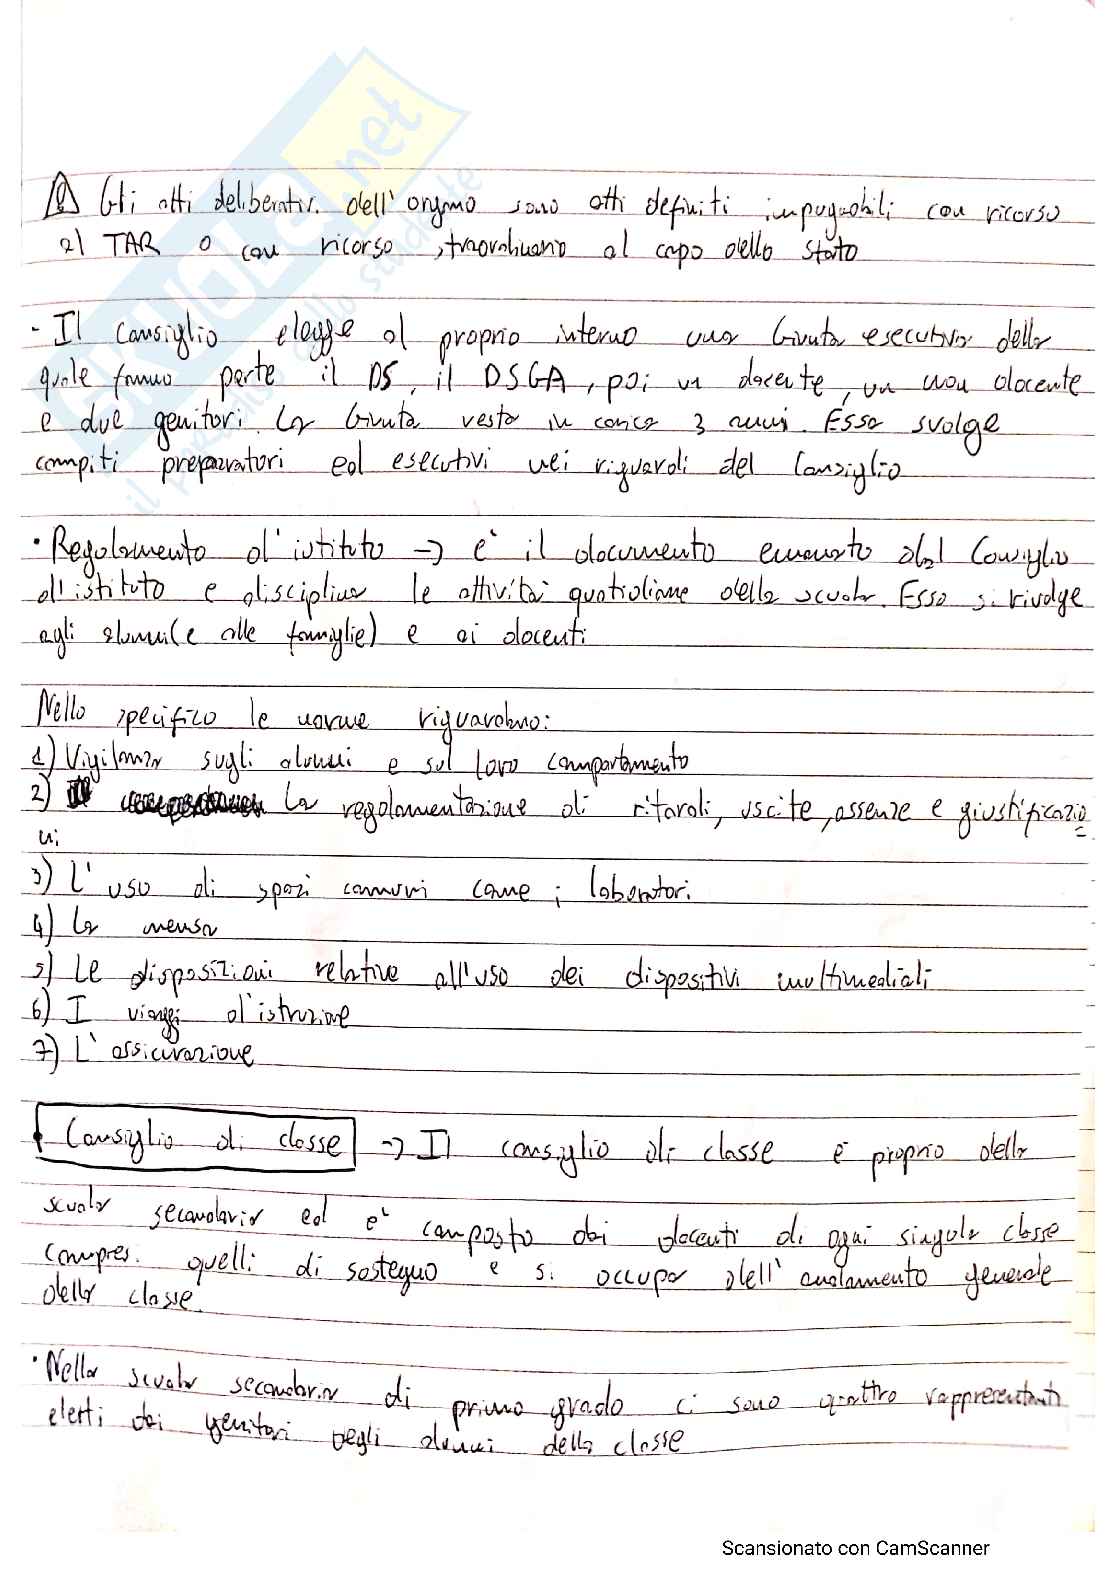 SKUOLA.net
il portale dello studente
Gli atti deliberativi dell'organo sono atti definiti impugnabili con ricorso
al TAR o con ricorso straordinario al capo dello Stato
- Il Consiglio elegge al proprio interno una Giunta esecutiva della
quale fanno parte il DS, il DSGA, poi un docente, un non docente
e due genitori. La Giunta resta in carica 3 anni. Essa svolge
compiti preparatori ed esecutivi nei riguardi del Consiglio
• Regolamento d'istituto → e' il documento emanato dal Consiglio
d'istituto e disciplina le attività quotidiane della scuola. Esso si rivolge
agli alunni (e alle famiglie) e ai docenti
Nello specifico le norme riguardano:
1) Vigilanza sugli alunni e sul loro comportamento
2) La regolamentazione di ritardi, uscite, assenze e giustificazio
ni
3) L'uso di spazi comuni come i laboratori
4) La mensa
5) Le disposizioni relative all'uso dei dispositivi multimediali
6) I viaggi d'istruzione
7) L'assicurazione
• Consiglio di classe → Il consiglio di classe è proprio della
scuola secondaria ed e' composto dai docenti di ogni singola classe
compresi quelli di sostegno e si occupa dell'andamento generale
della classe.
• Nella scuola secondaria di primo grado ci sono quattro rappresentanti
eletti dai genitori degli alunni della classe
Scansionato con CamScanner